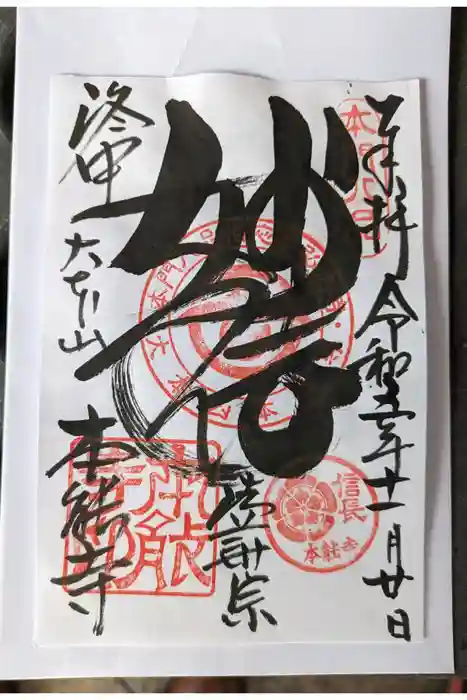 本門八品
奉拝 令和五年十一月廿日
妙信
法華宗
信長
本能寺
洛中
大本山
本能寺
本能